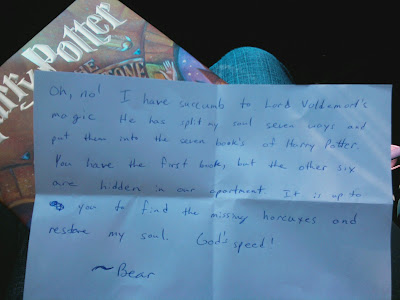 arry Potter
THE
TONE
Oh, no! I have succumb to Lord Voldamort's
magic. He has split my soul seven ways and
put them into the seven book's of Harry Potter.
You have the first book, but the other six
are hidden in our apartment. It is up to
you to find the missing horcuxes and
restore my soul. God's speed!
~Bear